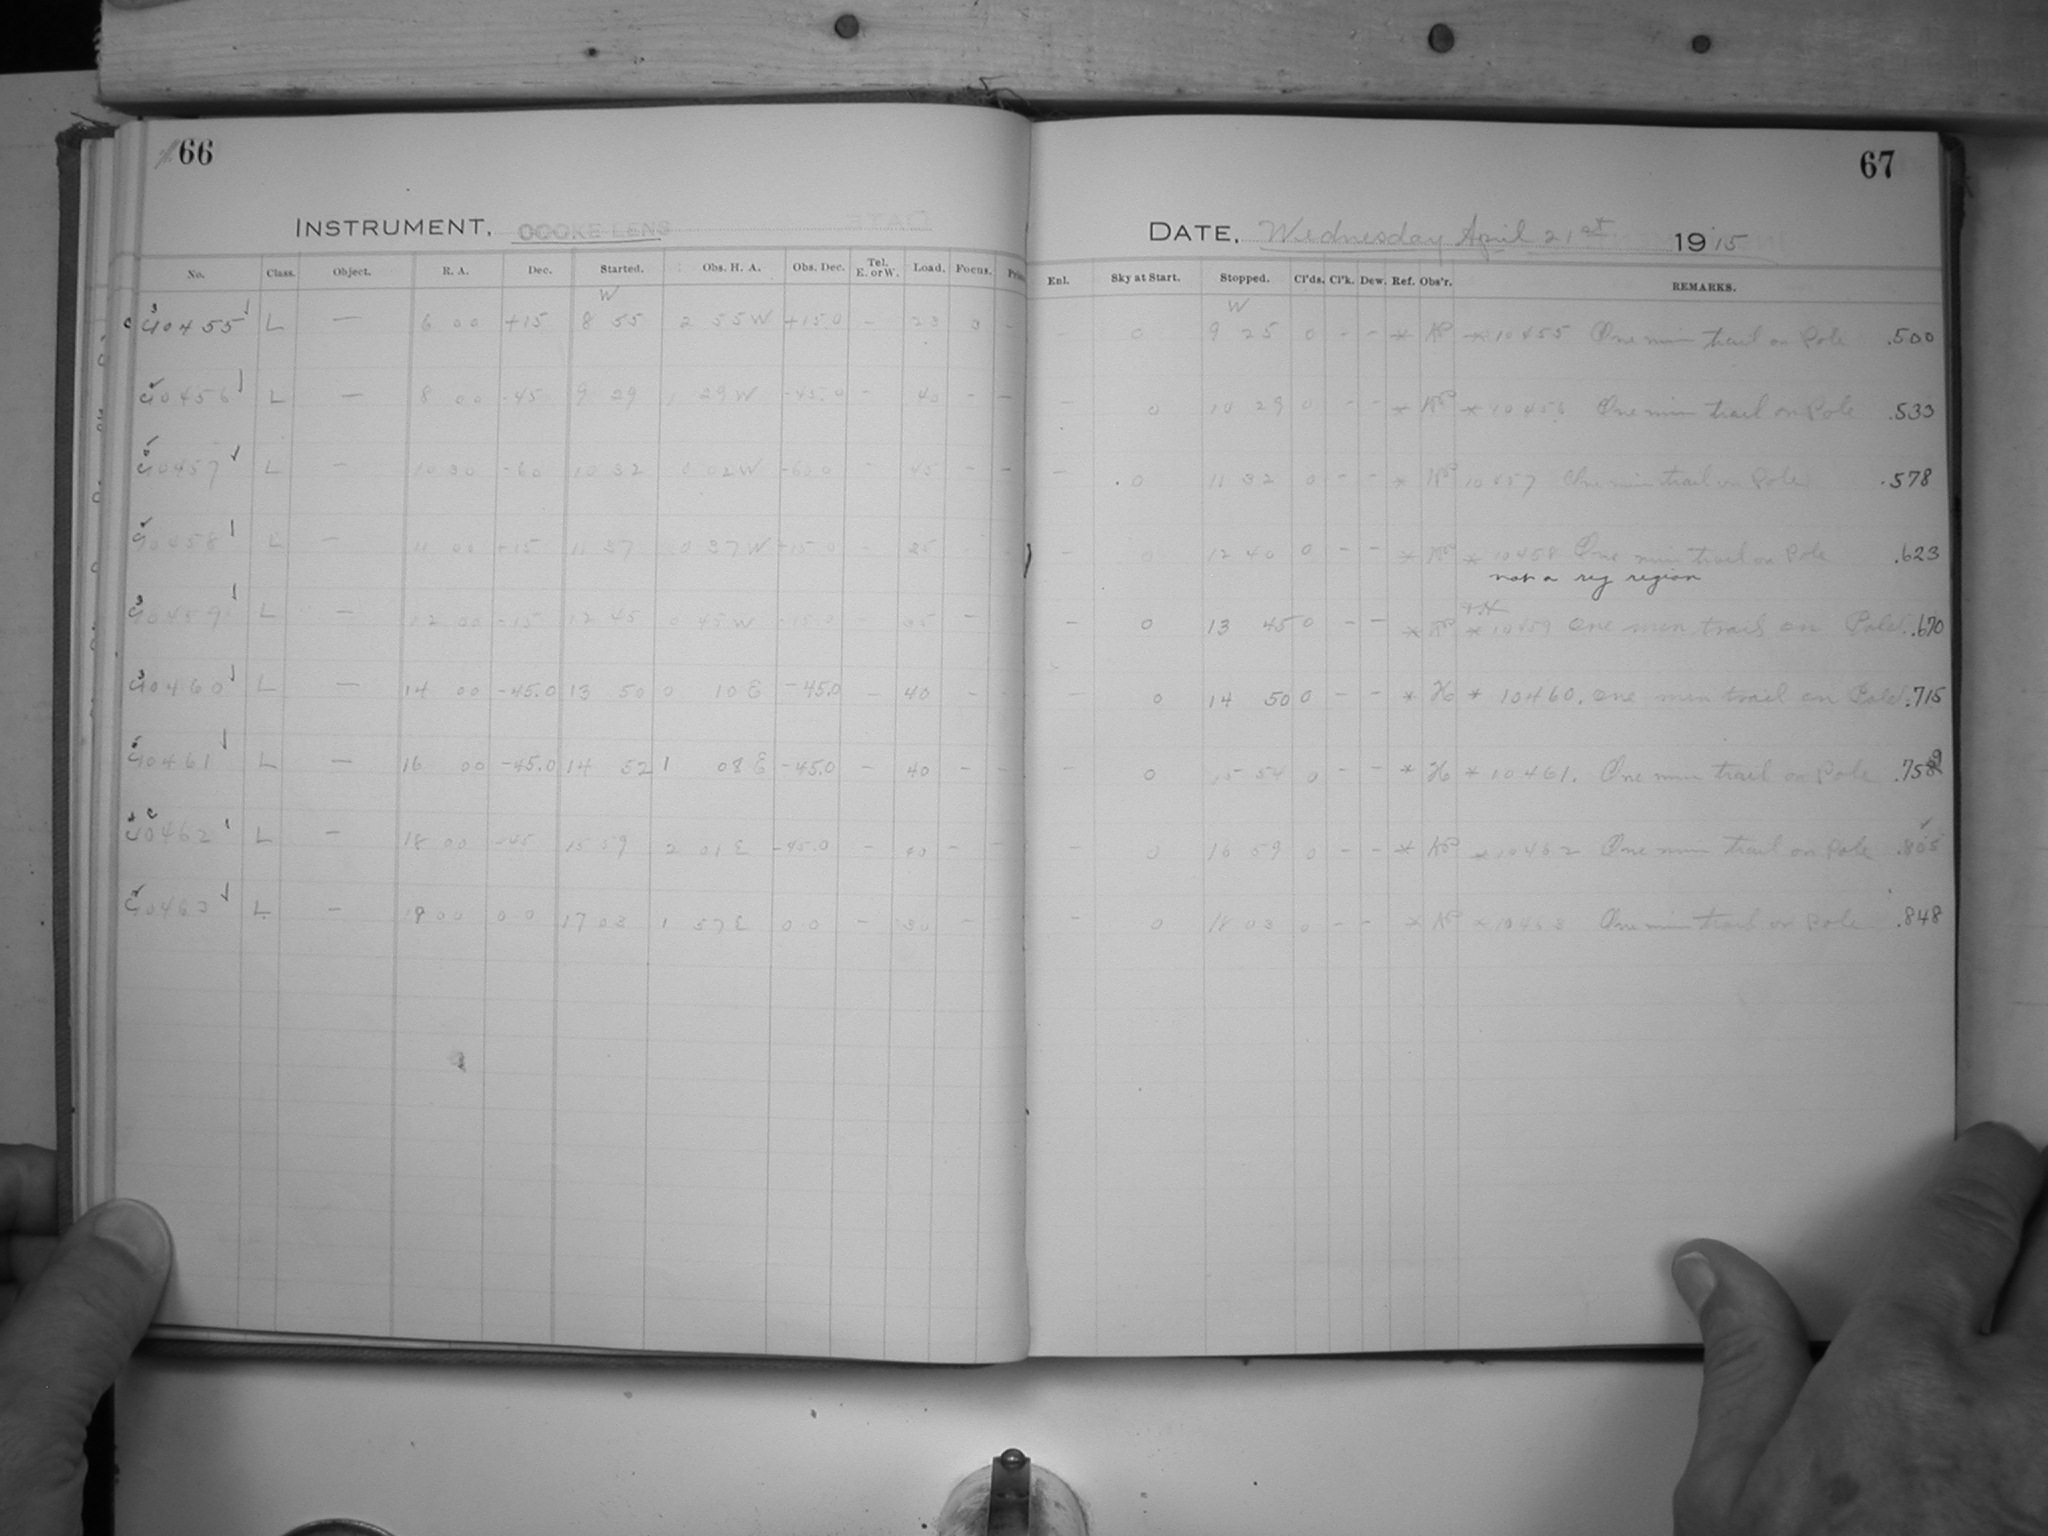 66
INSTRUMENT. COOKE LENS
No. Class. Object. R. A. Dec. Started. Obs. H. A. Obs. Dec. Tel. E. or W. Load. Focus.
W
10455 L — 6 00 +15 8 55 2 55 W +15.0 – 23 0 –
10456 L — 8 00 -45 9 29 1 29 W -45.0 – 40 – –
10457 L – 10 30 -60 10 32 0 02 W -60.0 – 45 – –
10458 L – 11 00 +15 11 37 0 37 W +15.0 – 25 –
10459 L — 12 00 -15 12 45 0 45 W -15.0 – 35 –
10460 L — 14 00 -45.0 13 50 0 10 E -45.0 – 40 –
10461 L — 16 00 -45.0 14 52 1 08 E -45.0 – 40 – –
10462 L – 18 00 -45 15 59 2 01 E -45.0 – 40 – –
10463 L – 19 00 0 0 17 03 1 57 E 0 0 – 30 –
67
DATE, Wednesday April 21st 1915
Enl. Sky at Start. Stopped. Cl'ds. Cl'k. Dew. Ref. Obs'r. REMARKS.
W
– 0 9 25 0 – – * * 10455 One min trail on Pole .500
– 0 10 29 0 – – * * 10456 One min trail on Pole .533
– 0 11 32 0 – – * 10457 One min trail on Pole .578
– 0 12 40 0 – – * * 10458 One min trail on Pole .623
not a reg region
– 0 13 45 0 – – * * 10459 One min trail on Pole .670
– 0 14 50 0 – – * H * 10460. One min trail on Pole .715
– 0 15 54 0 – – * H * 10461. One min trail on Pole .759
– 0 16 59 0 – – * * 10462 One min trail on Pole .805
– 0 18 03 0 – – * * 10463 One min trail on Pole .848